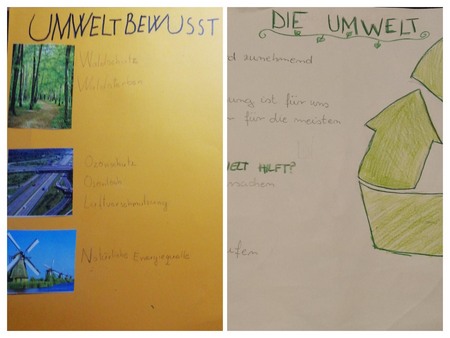 UMWELTBEWUSST
Waldschutz
Waldsterben
Ozonschutz
Ozonloch
Luftverschmutzung
Natürliche Energiequelle
DIE UMWELT
d zunehmend
ist für uns
für die meisten
HILFT?